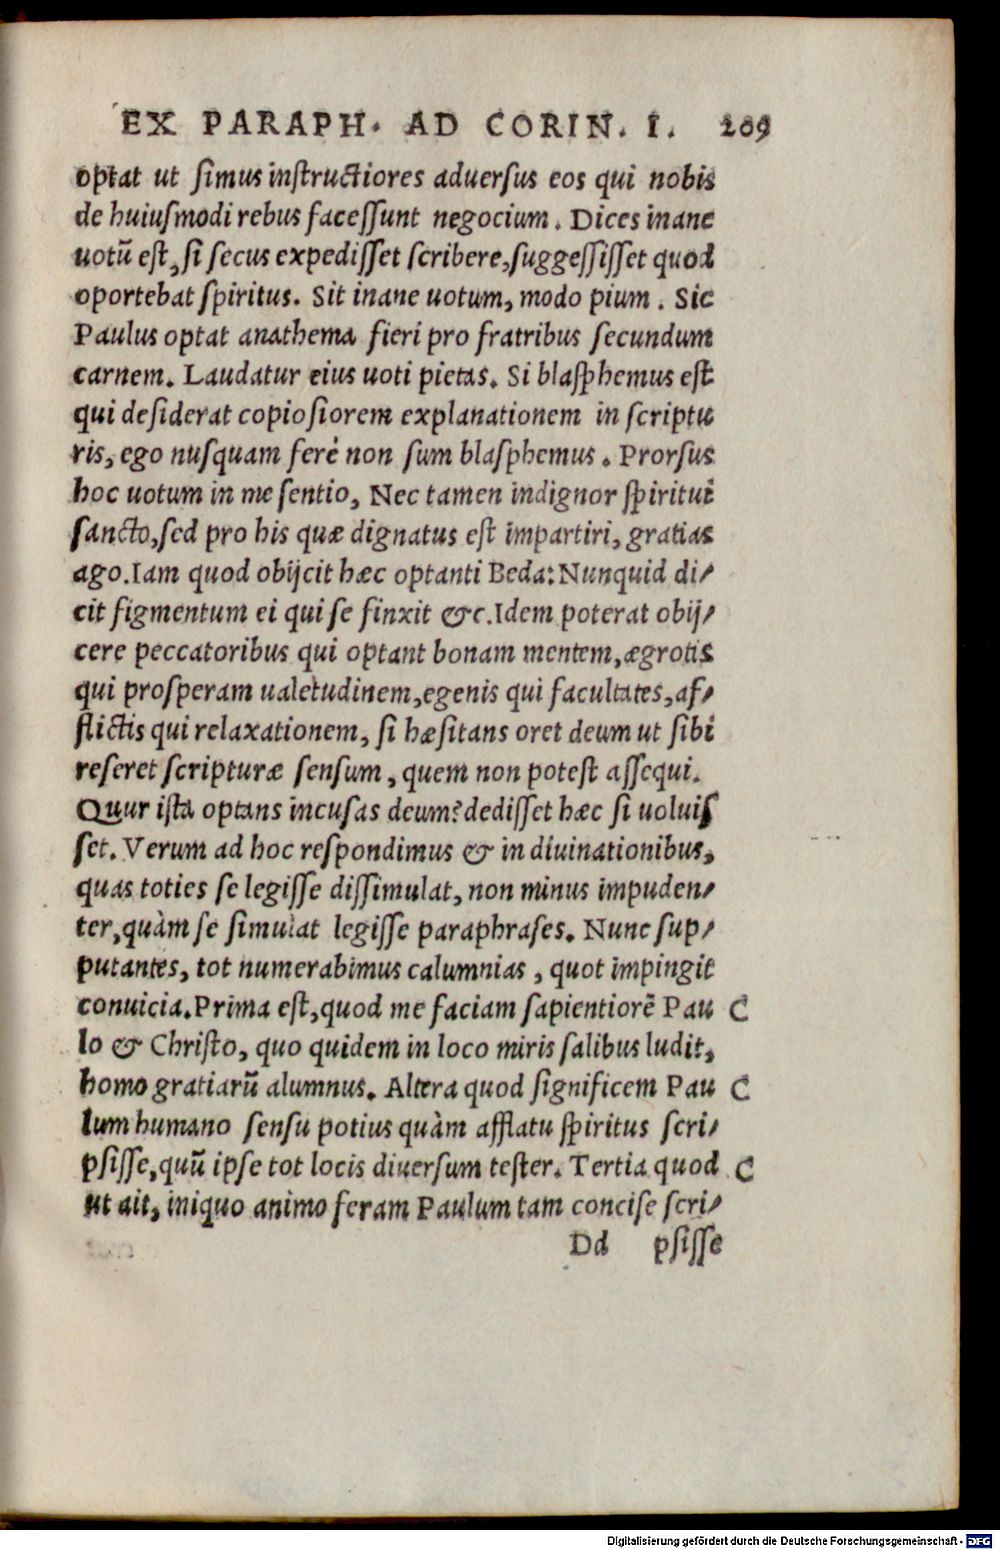 EX PARAPH. AD CORIN. I. 209
optat ut simus instructiores aduersus eos qui nobis
de huiusmodi rebus facessunt negocium. Dices inane
uotũ est, si secus expedisset scribere, suggessisset quod
oportebat spiritus. Sit inane uotum, modo pium. Sic
Paulus optat anathema fieri pro fratribus secundum
carnem. Laudatur eius uoti pietas. Si blasphemus est
qui desiderat copiosiorem explanationem in scriptu
ris, ego nusquam ferè non sum blasphemus. Prorsus
hoc uotum in me sentio, Nec tamen indignor spiritui
sancto, sed pro his quæ dignatus est impartiri, gratias
ago. Iam quod obijcit hæc optanti Beda: Nunquid di/
cit figmentum ei qui se finxit &c. Idem poterat obij/
cere peccatoribus qui optant bonam mentem, ægrotis
qui prosperam ualetudinem, egenis qui facultates, af/
flictis qui relaxationem, si hæsitans oret deum ut sibi
reseret scripturæ sensum, quem non potest assequi.
Quur ista optans incusas deum? dedisset hæc si uoluis
set. Verum ad hoc respondimus & in diuinationibus,
quas toties se legisse dissimulat, non minus impuden/
ter, quàm se simulat legisse paraphrases. Nunc sup/
putantes, tot numerabimus calumnias, quot impingit
conuicia. Prima est, quod me faciam sapientiorẽ Pau C
lo & Christo, quo quidem in loco miris salibus ludit,
homo gratiarũ alumnus. Altera quod significem Pau C
lum humano sensu potius quàm afflatu spiritus scri/
psisse, quũ ipse tot locis diuersum tester. Tertia quod C
ut ait, iniquo animo feram Paulum tam concise scri/
Dd psisse
Digitalisierung gefördert durch die Deutsche Forschungsgemeinschaft - DFG